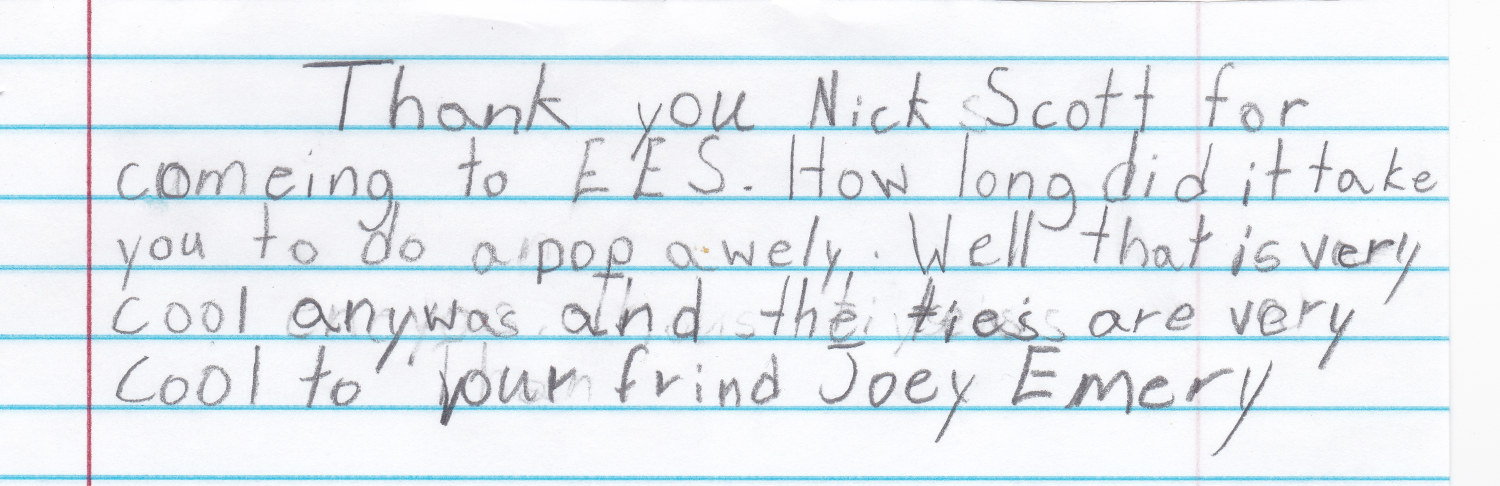 Thank you Nick Scott for
comeing to EES. How long did it take
you to do a pop a wely. Well that is very
cool anywas and the ties are very
cool to your frind Joey Emery